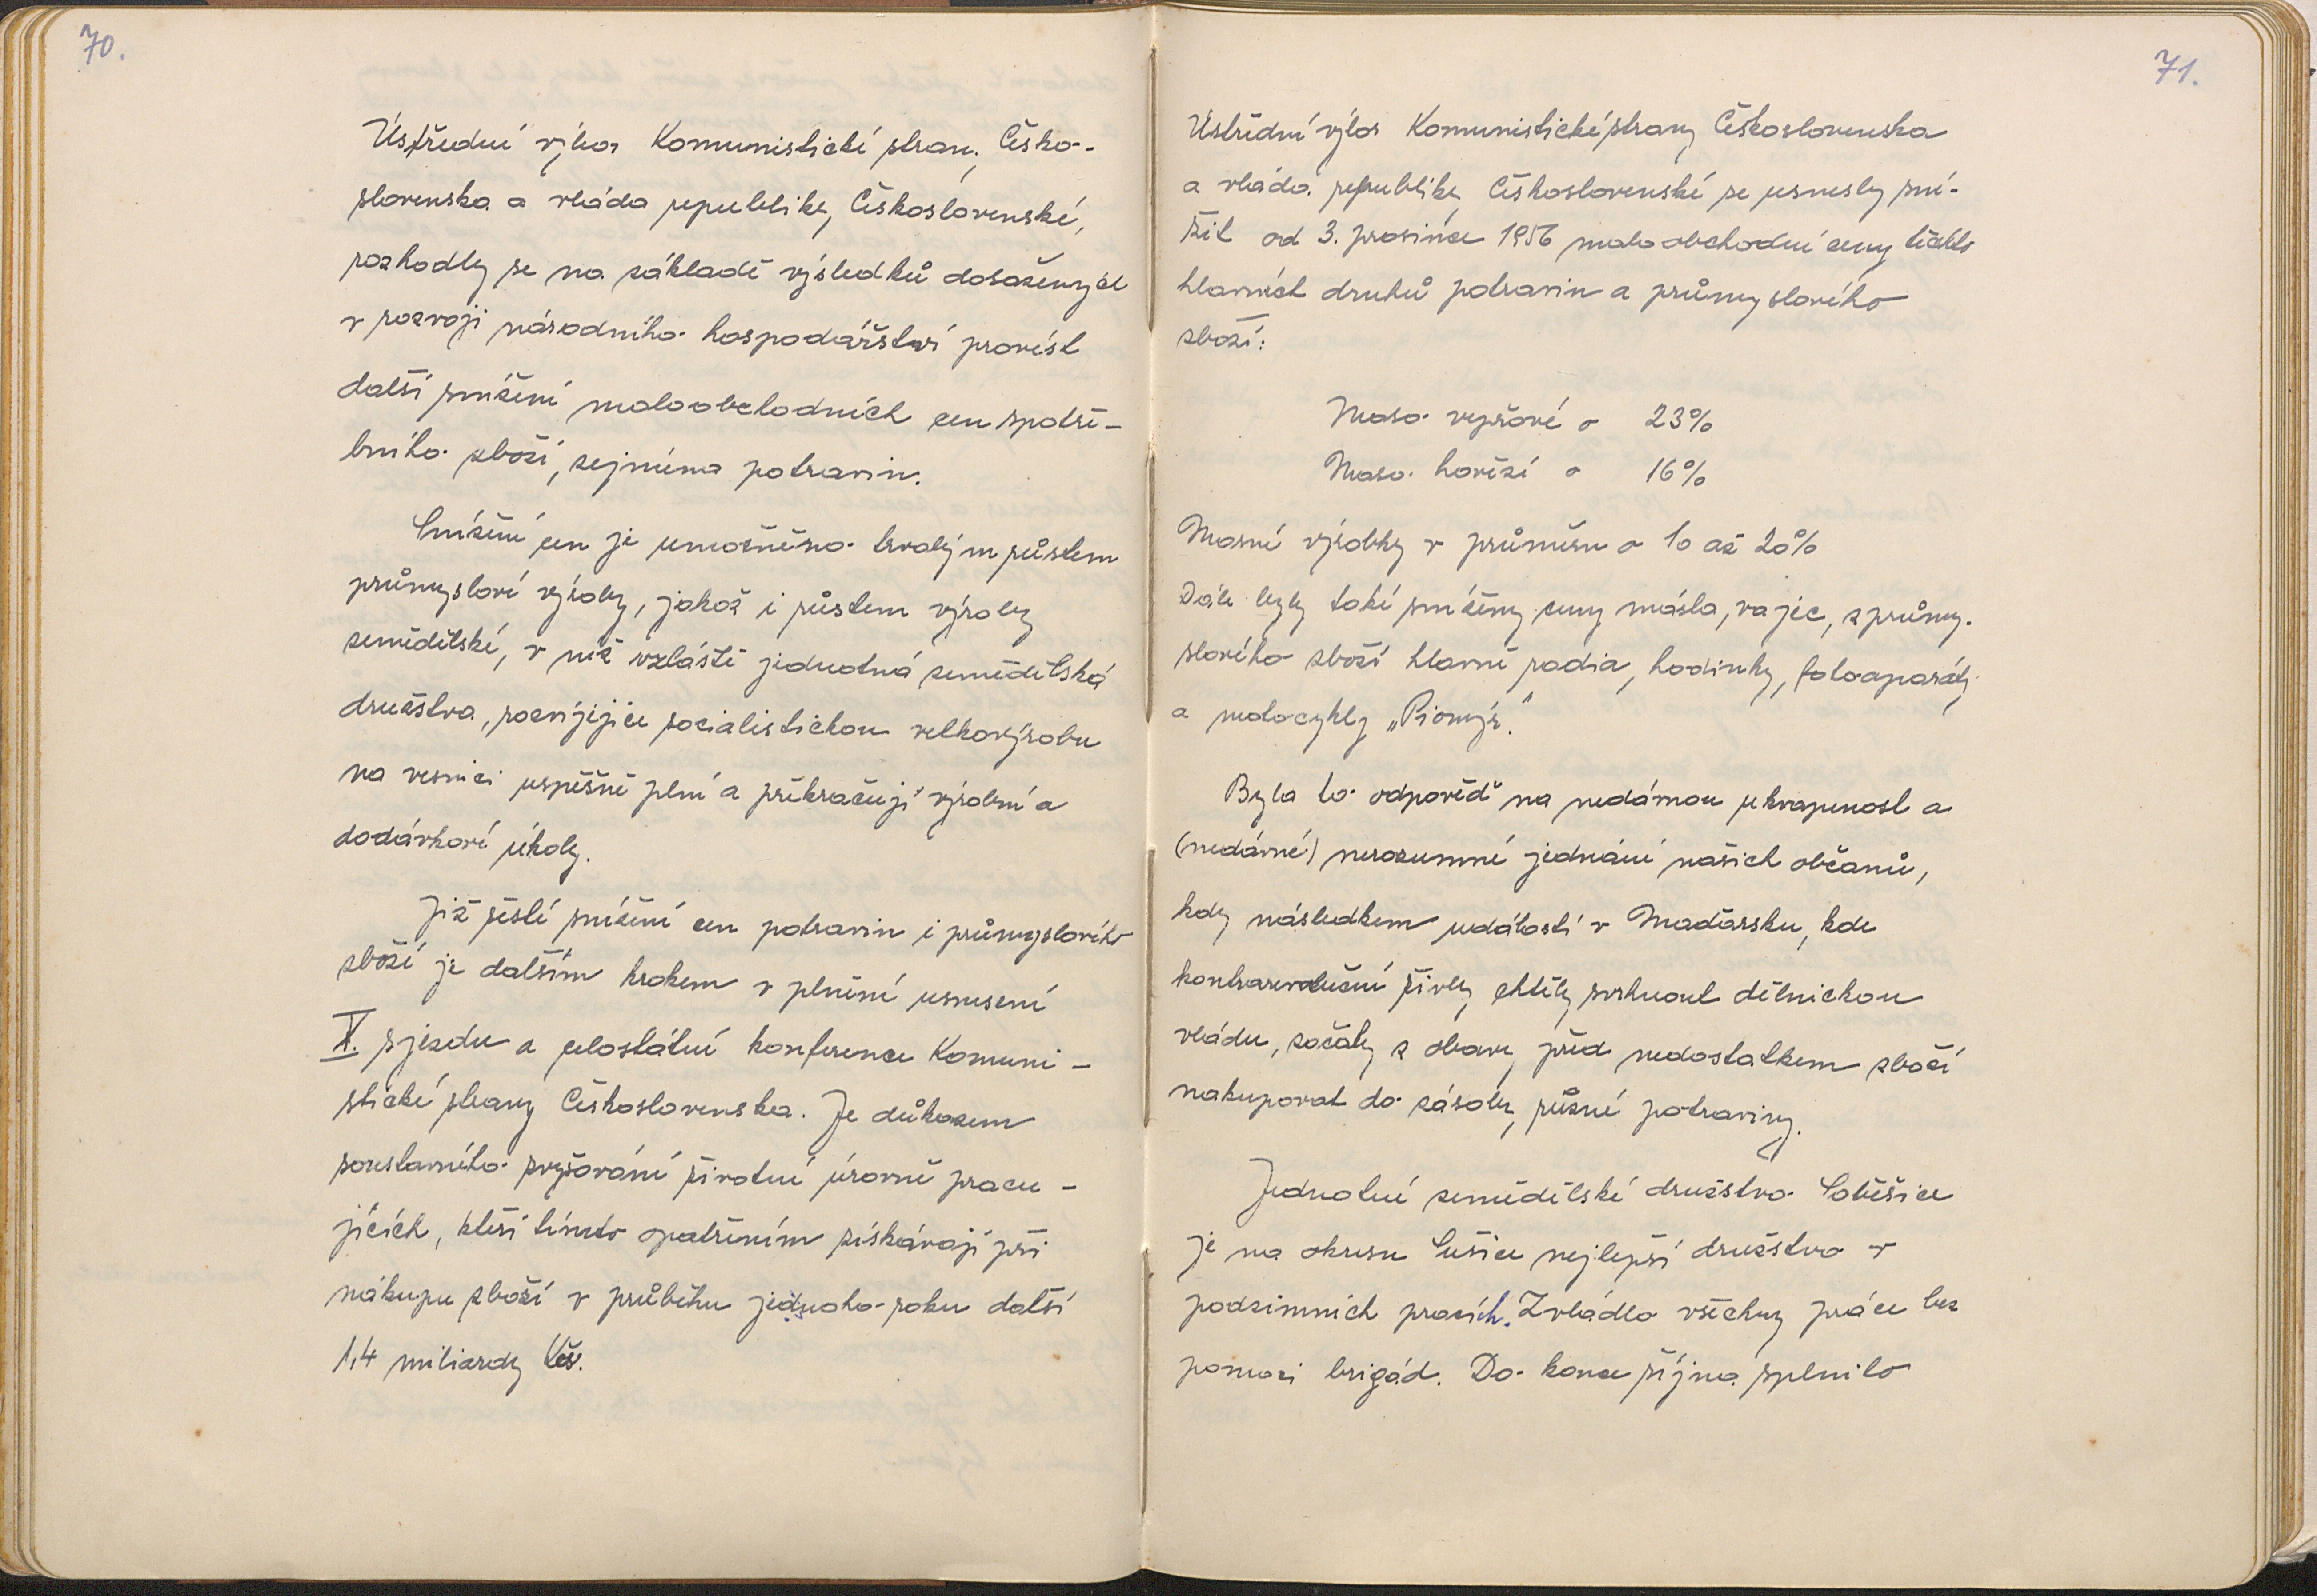 70.
Ústřední výbor Komunistické strany Česko-
slovenska a vláda republiky Československé,
rozhodly se na základě výsledků dosažených
v rozvoji národního hospodářství provést
další snížení maloobchodních cen spotře-
bního zboží, zejména potravin.
Snížení cen je umožněno trvalým růstem
průmyslové výroby, jakož i růstem výroby
zemědělské, v níž vzláště jednotná zemědělská
družstva, rozvíjejíce socialistickou velkovýrobu
na vesnici úspěšně plní a překračují výrobní a
dodávkové úkoly.
Již šesté snížení cen potravin i průmyslového
zboží je dalším krokem v plnění usnesení
X. sjezdu a celostátní konference Komuni-
stické strany Československa. Je důkazem
soustavného zvyšování životní úrovně pracu-
jících, kteří tímto opatřením získávají při
nákupu zboží v průběhu jednoho roku další
1,4 miliardy Kčs.
71.
Ústřední výbor Komunistické strany Československa
a vláda republiky Československé se usnesly sní-
žit od 3. prosince 1956 maloobchodní ceny těchto
hlavních druhů potravin a průmyslového
zboží:
Maso vepřové o 23%
Maso hovězí o 16%
Masné výrobky v průměru o 10 až 20%
Dále byly také sníženy ceny másla, vajec, z průmy-
slového zboží hlavně radia, hodinky, fotoaparáty
a motocykly „Pionýr."
Byla to odpověď na nedávnou ukvapenost a
(nedávné) nerozumné jednání našich občanů,
kdy následkem událostí v Maďarsku, kde
kontrarevoluční živly chtěly svrhnout dělnickou
vládu, začaly z obavy před nedostatkem zboží
nakupovat do zásoby různé potraviny.
Jednotné zemědělské družstvo Soběšice
je na okresu Sušice nejlepší družstvo v
podzimních pracích. Zvládlo všechny práce bez
pomoci brigád. Do konce října splnilo